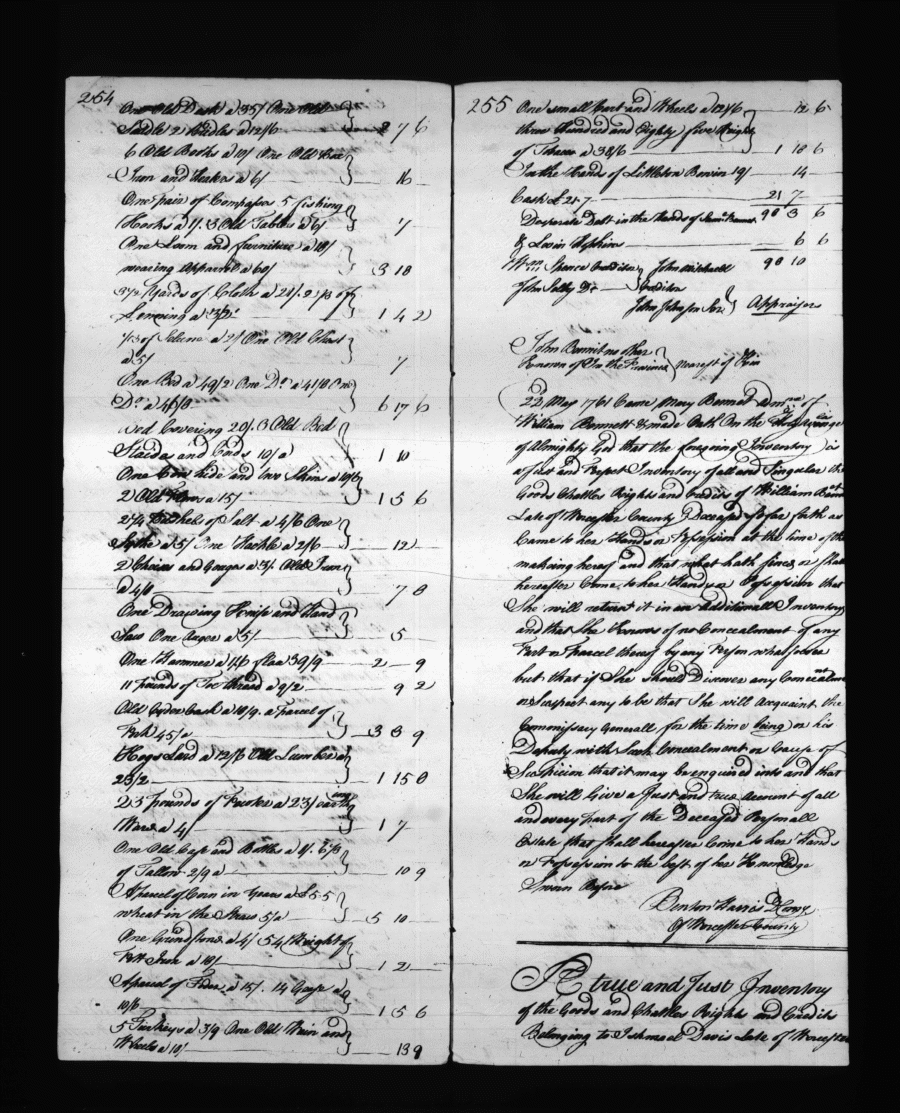 254
One Old Desk a 35/ One Old
Saddle 2 Bridles a 12/6 2 7 6
6 Old Books a 10/ One Old Box
Iron and Heaters a 6/ 16
One pair of Compases 5 fishing
Hooks a 1/. 3 Old Tables a 6/ 7
One Loom and furniture a 18/
wearing Apparel a 60/ 3 18
Yards of Cloth a 21/. 2 1/3 of
a 3/2 1 4 2
of a 2/ One Old Chest
a 5/ 7
One Bed a 49/2 One Do. a 41/8 One
Do. a 46/8 6 17 6
Bed Covering 20/. 3 Old Bed
Steads and Cords 10/a 1 10
One Cow hide and two Skins a 10/6
2 Old a 15/ 1 5 6
2 1/4 Bushels of Salt a 4/6 One
a 5/ One Hackle a 2/6 12
2 Chains and Gouges a 3/. Old Iron
a 4/8 7 8
One Drawing Knife and Hand
Saw One Auger a 5/ 5
One Hammer a 1/6 flax 39/9 2 9
11 pounds of Toe thread a 9/2 9 2
Old Cyder Cask a 18/9. a parcel of
Pork 45/a 3 3 9
Hogs Lard a 12/6 Old Lumber a
23/2 1 15 8
23 pounds of Pewter a 23/ earthen
Ware a 4/ 1 7
One Old Case and Bottles a
of Tallow 2/9 a 10 9
A parcel of Corn in Years a £5 5
wheat in the Straw 5/a 5 10
One Grindstone a 4/ 54 Weight of
Pott Iron a 18/ 1 2
A parcel of Fodder a 15/. 14 Geese a
10/6 1 5 6
5 Turkeys a 3/9 One Old and
Wheels a 10/ 13 9
255
One small Cart and Wheels a 12/6 12 6
three Hundred and Eighty five Weight
of Tobacco a 38/6 1 18 6
In the hands of Littleton Bowin 14/ 14
Cash £ 21.7 21 7
Desperate Debt in the Hands of 90 3 6
& Levin Hopkins 6 6
Wm Spence Creditor John Michaell 90 10
John Selby Do Creditor
John Johnson Senr Appraisers
John Bennit no other
Known of In the Province nearest of Kin
22 May 1761 Came Mary Bennet Admrx of
William Bennett & made Oath On the Holy Evange
of Almighty God that the foregoing Inventory is
a Just and Perfect Inventory of all and Singular the
Goods Chattles Rights and Credits of William Bennet
Late of Worcester County Deceased so far forth as
Came to her Hands or Possession at the time of the
making hereof and that what hath since or shall
hereafter Come to her Hands or Possession that
She will return it in an Additionall Inventory
and that She Knows of no Concealment of any
Part or Parcel thereof by any Person whatsoever
but that if She should Discover any Concealment
or Suspect any to be that She will Acquaint the
Commissary Generall for the time being or his
Deputy with Such Concealment or Cause of
Suspicion that it may be enquired into and that
She will Give a Just and true Account of all
and every part of the Deceased Personall
Estate that shall hereafter Come to her Hands
or Possession to the best of her Knowledge
Sworn Before
Benton Harris D Comy
Of Worcester County
A true and Just Inventory
of the Goods and Chattles Rights and Credits
Belonging to Ishmael Davis Late of Worcester